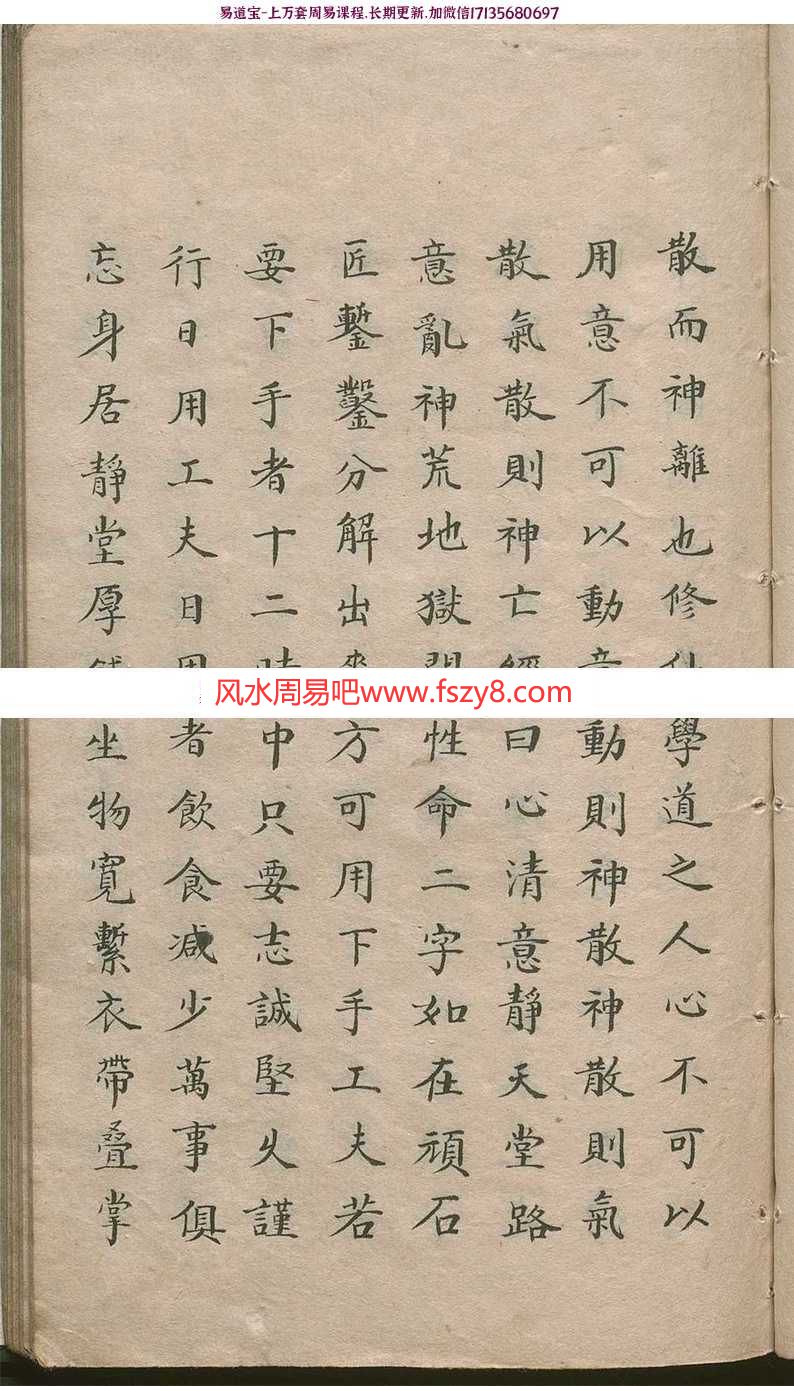 易道宝-上万套周易课程.长期更新.加微信17135680697
散而神離也修學道之人心不可以
用意不可以動動則神散神散則氣
散氣散則神亡曰心清意靜天堂路
意亂神荒地獄性命二字如在頑石
匠鏨鑿分解出方可用下手工夫若
要下手者十二中只要志誠堅久謹
行日用工夫日者飲食减少萬事俱
忘身居靜堂厚坐物寛繫衣帶疊掌
风水周易吧www.fszy8.com